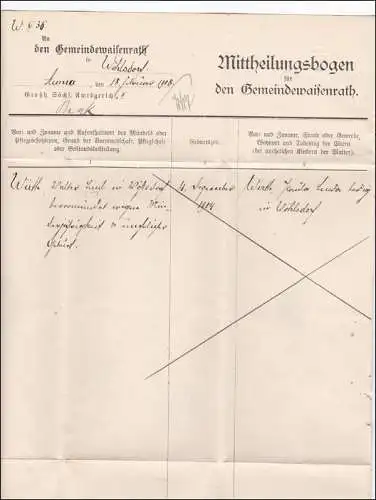 W 636
An
den Gemeindewaisenrath
in Wöhlsdorf
Auma, den 18. Februar 1908.
Großh. Sächs. Amtsgericht
Mittheilungsbogen
für
den Gemeindewaisenrath.
Vor- und Zuname und Aufenthaltsort des Mündels oder
Pflegebefohlenen, Grund der Vormundschaft, Pflegschaft
oder Beistandsbestellung.
Geburtszeit.
Vor- und Zuname, Stand oder Gewerbe,
Wohnort und Todestag der Eltern
(bei unehelichen Kindern der Mutter).
1
2
3
Wirth, Walter in Wöhlsdorf
bevormundet wegen Min-
derjährigkeit u. unehelicher
Geburt.
4. Dezember
Wirth
in Wöhlsdorf